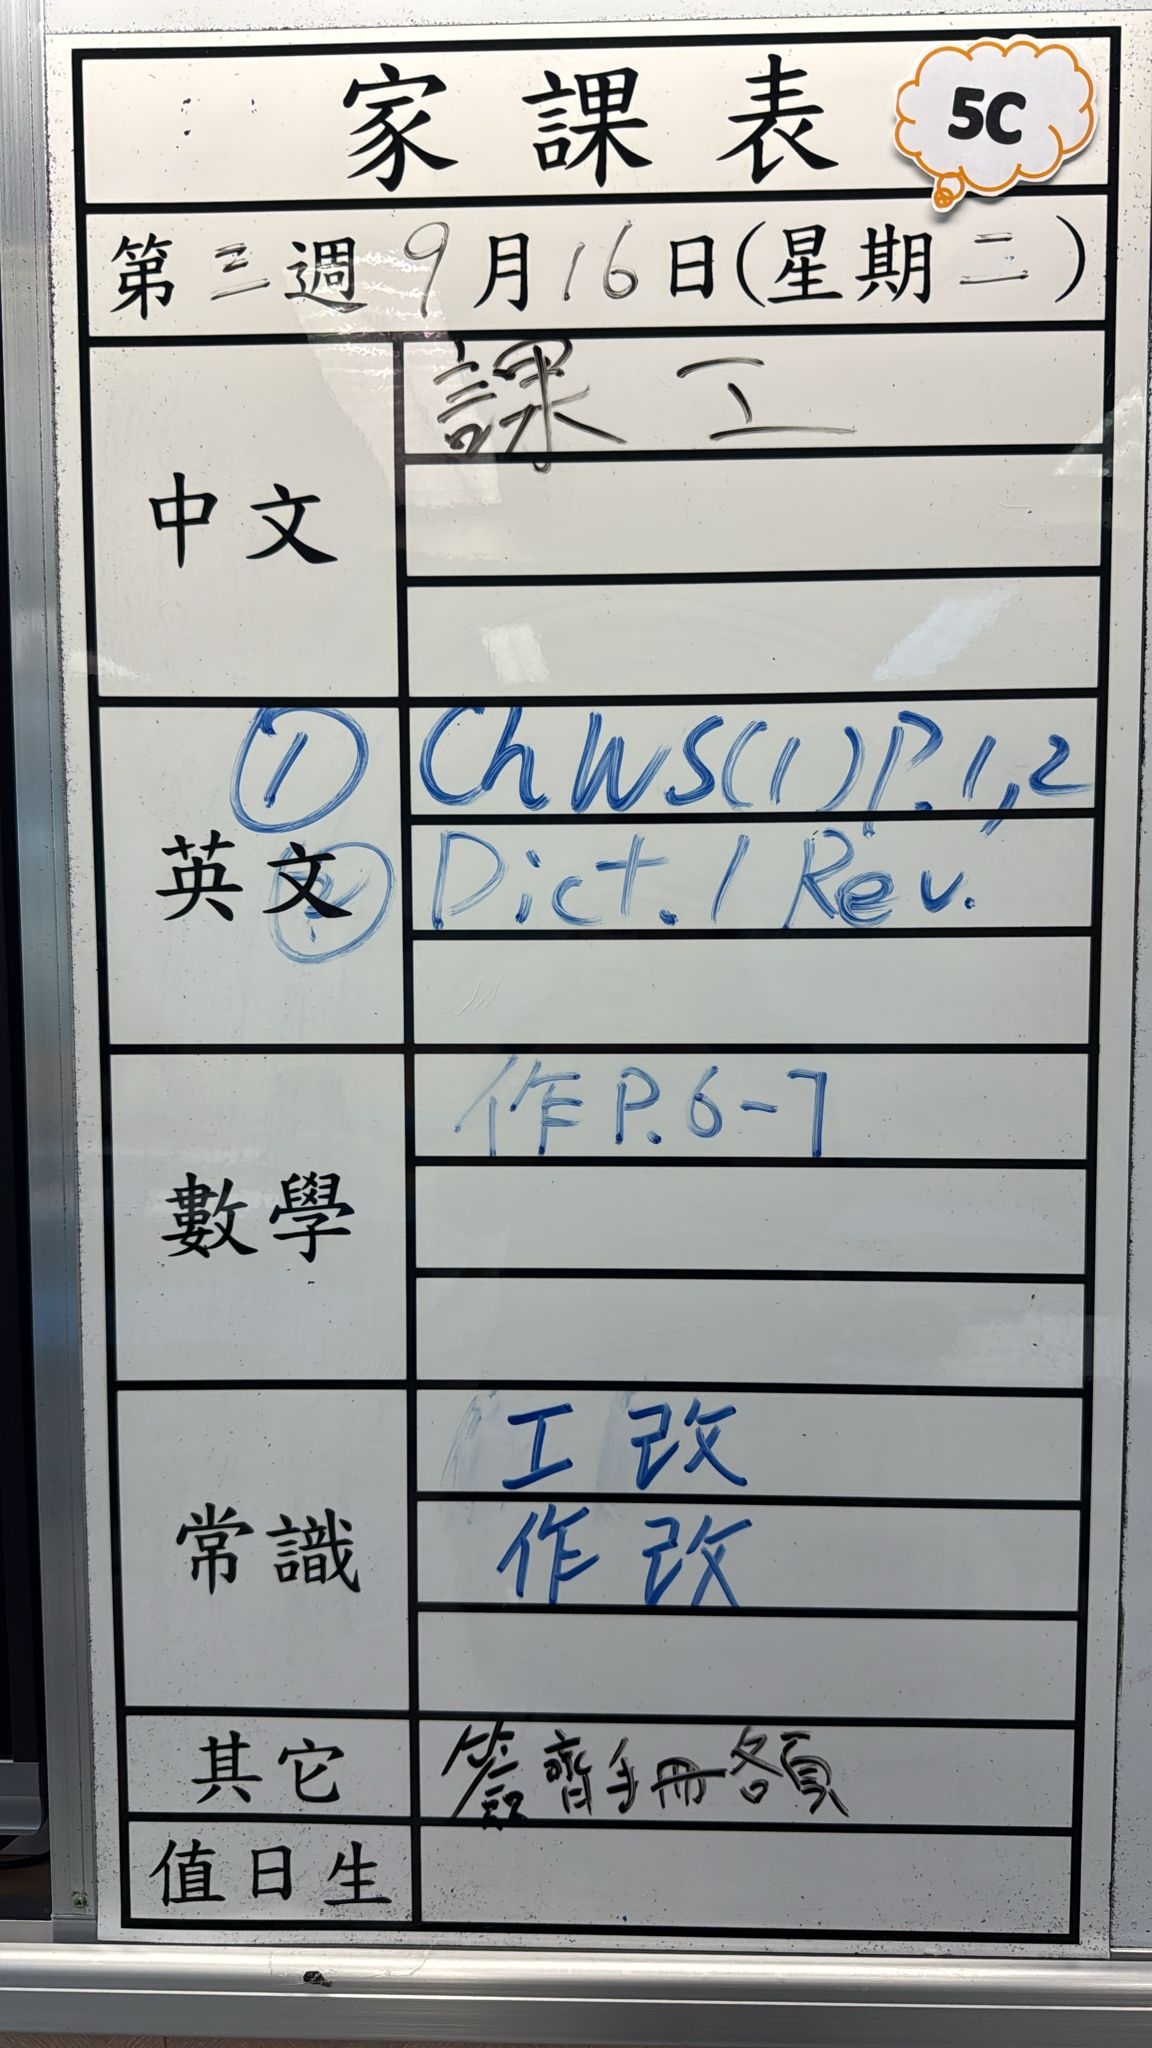 家課表
5C
第三週9月16日(星期二)
中文
課工
英文
① Ch WS(1) P.1,2
② Dict.1 Rev.
數學
作P.6-7
常識
工改
作改
其它
簽齊手冊各頁
值日生